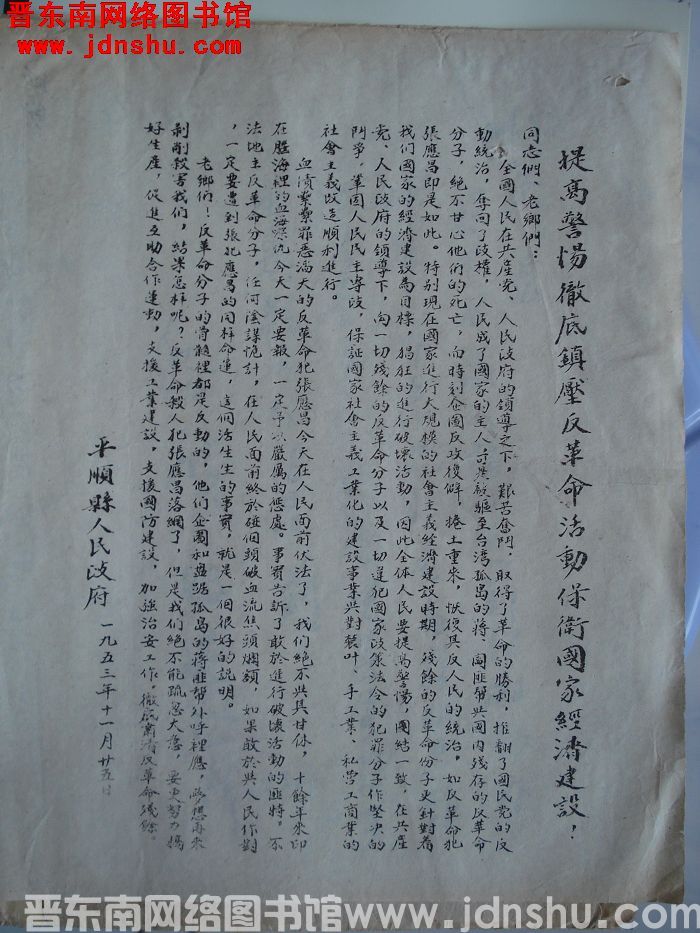 晋东南网络图书馆
www.jdnshu.com
提高警惕徹底鎮壓反革命活動保衛國家經濟建設！
同志們、老鄉們：
全國人民在共產党、人民政府的領導之下，艱苦奮鬥，取得了革命的勝利，推翻了國民党的反
動統治，奪回了政權，人民成了國家的主人，被驅至台湾孤島的蒋、閻匪幫共國内残存的反革命
分子，絕不甘心他們的死亡，向時刻企圖反攻復辟，捲土重來，恢復其反人民的統治，如反革命犯
張應昌即是如此。特别現在國家進行大規模的社會主義經濟建設時期，殘餘的反革命份子更針對着
我們國家的經濟建設為目標，猖狂的進行破壞活動，因此全体人民要提高警惕，團結一致，在共產
党、人民政府的領導下，向一切殘餘的反革命分子以及一切違犯國家政策法令的犯罪分子作堅决的
鬥爭，鞏固人民民主專政，保証國家社會主義工業化的建設事業共對農业、手工業、私营工商業的
社會主義改造順利進行。
血債纍纍罪恶滔天的反革命犯張應昌今天在人民面前伏法了，我們絕不共其甘休，十餘年來印
在腦海裡的血海深仇今天一定要報，一定予以嚴厲的懲處。事實告訴了敢於進行破壞活動的匪特，不
法地主反革命分子，任何陰謀詭計，在人民面前終於碰個頭破血流焦頭爛額，如果敢於共人民作對
，一定要遭到張犯應昌的同样命運，這個活生生的事實，就是一個很好的説明。
老鄉們！反革命分子的骨髓裡都是反動的，他們企圖和盘踞孤島的蒋匪幫外呼裡應，夢想再來
剥削殺害我們，結果怎样呢？反革命殺人犯張應昌落網了，但是我們絕不能疏忽大意，要更努力搞
好生產，促進互助合作運動，支援工業建設，支援國防建設，加強治安工作，徹底肅清反革命殘餘。
平順縣人民政府 一九五三年十一月廿五日
晋东南网络图书馆 www.jdnshu.com